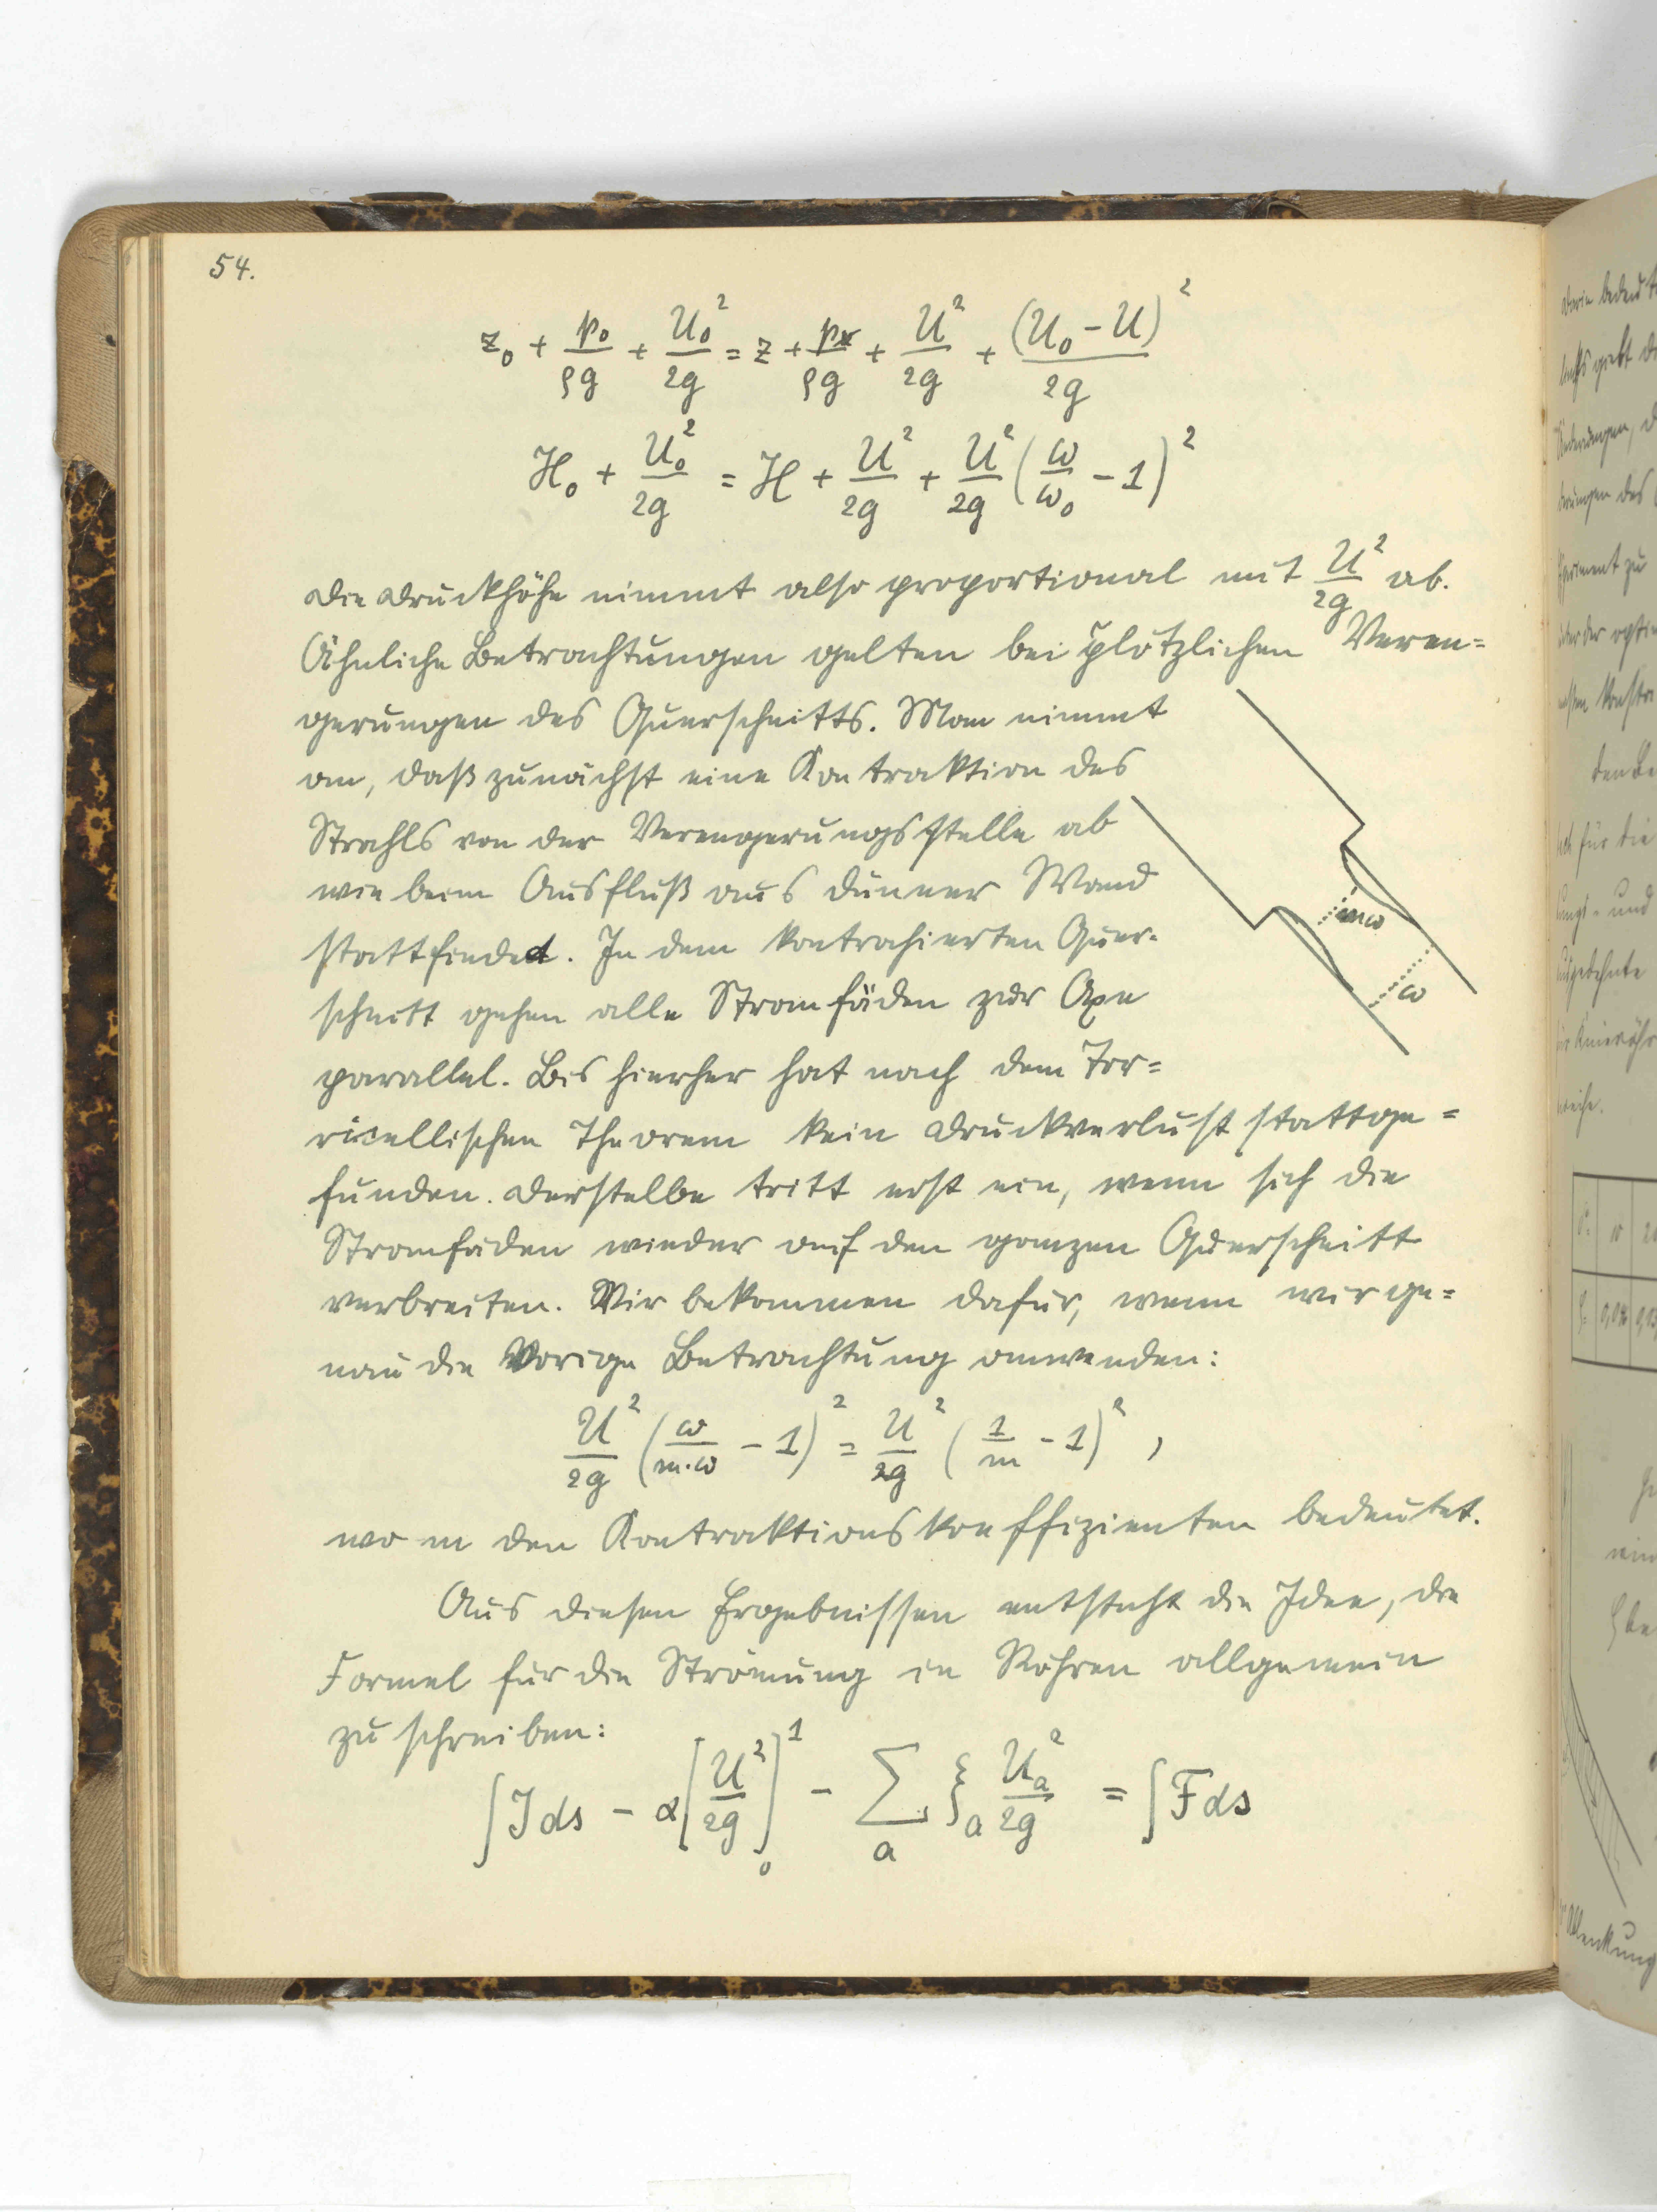 54.
z₀ + p₀/ρg + U₀²/2g = z + p/ρg + U²/2g + (U₀ - U)²/2g
H₀ + U₀²/2g = H + U²/2g + U²/2g (ω/ω₀ - 1)²
Die Druckhöhe nimmt also proportional mit U²/2g ab.
Ähnliche Betrachtungen gelten bei plötzlichen Veren=
gerungen des Querschnitts. Man nimmt
an, daß zunächst eine Kontraktion des
Strahls von der Verengerungsstelle ab
wie beim Ausfluß aus dünner Wand
stattfindet. In dem kontrahierten Quer-
schnitt gehen alle Stromfäden zur Axe
parallel. Bis hierher hat nach dem Tor=
ricellischen Theorem kein Druckverlust stattge=
funden. Derselbe tritt erst ein, wenn sich die
Stromfäden wieder auf den ganzen Querschnitt
verbreiten. Wir bekommen dafür, wenn wir ge=
nau die Vorige Betrachtung anwenden:
U²/2g (ω/m·ω - 1)² = U²/2g (1/m - 1)²,
wo m den Kontraktionskoeffizienten bedeutet.
Aus diesen Ergebnissen entsteht die Idee, die
Formel für die Strömung in Röhren allgemein
zu schreiben:
∫J ds - α[U²/2g]₀¹ - Σₐ ζₐ Uₐ²/2g = ∫F ds
mω
ω